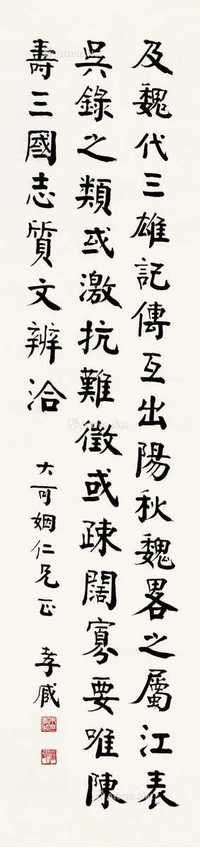 及魏代三雄記傳互出陽秋魏畧之屬江表
吳錄之類或激抗難徵或疎闊寡要唯陳
壽三國志質文辨洽
大可姻仁兄正
孝臧